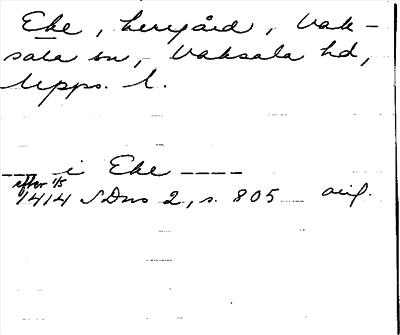 Eke, herrgård, Vak-
sala sn, Vaksala hd,
Upps. l.
--- i Eke ----
efter 1/5
1414 SDns 2, s. 805 avj.